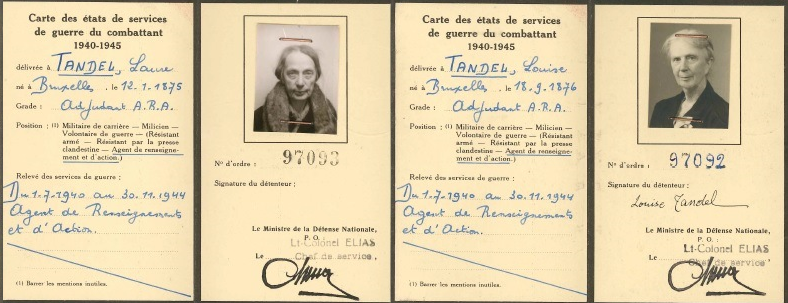 Carte des états de services
de guerre du combattant
1940-1945
délivrée à TANDEL, Laure
né à Bruxelles, le 12.1.1875
Grade : Adjudant A.R.A.
Position : (1) Militaire de carrière — Milicien —
Volontaire de guerre — (Résistant
armé — Résistant par la presse
clandestine — Agent de renseigne-
ment et d'action.)
Relevé des services de guerre :
Du 1.7.1940 au 30.11.1944
Agent de Renseignements
et d'Action.
(1) Barrer les mentions inutiles.
N° d'ordre : 97093
Signature du détenteur :
Le Ministre de la Défense Nationale,
P. O.
Lt-Colonel ELIAS
Le Chef de service.
Carte des états de services
de guerre du combattant
1940-1945
délivrée à TANDEL, Louise
né à Bruxelles, le 18.9.1876
Grade : Adjudant A.R.A.
Position : (1) Militaire de carrière — Milicien —
Volontaire de guerre — (Résistant
armé — Résistant par la presse
clandestine — Agent de renseigne-
ment et d'action.)
Relevé des services de guerre :
Du 1.7.1940 au 30.11.1944
Agent de Renseignements
et d'Action.
(1) Barrer les mentions inutiles.
N° d'ordre : 97092
Signature du détenteur :
Louise Tandel
Le Ministre de la Défense Nationale,
P. O. :
Lt-Colonel ELIAS
Le Chef de service